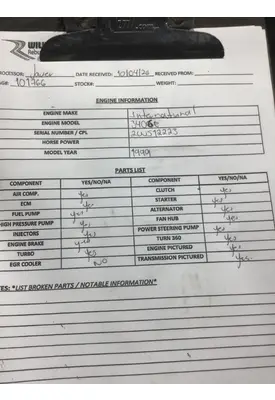 WIL
Rebu
OCESSOR: DATE RECEIVED: 10/04/20 RECEIVED FROM:
VG#: 101966 STOCK#: WEIGHT:
ENGINE INFORMATION
ENGINE MAKE International
ENGINE MODEL 3406E
SERIAL NUMBER / CPL 2WS12223
HORSE POWER
MODEL YEAR 1999
PARTS LIST
COMPONENT YES/NO/NA COMPONENT YES/NO/NA
AIR COMP. yes CLUTCH yes
ECM yes STARTER yes
FUEL PUMP yes ALTERNATOR yes
HIGH PRESSURE PUMP yes FAN HUB yes
INJECTORS yes POWER STEERING PUMP yes
ENGINE BRAKE yes TURN 360
TURBO yes ENGINE PICTURED yes
EGR COOLER NO TRANSMISSION PICTURED yes
ES: *LIST BROKEN PARTS / NOTABLE INFORMATION*